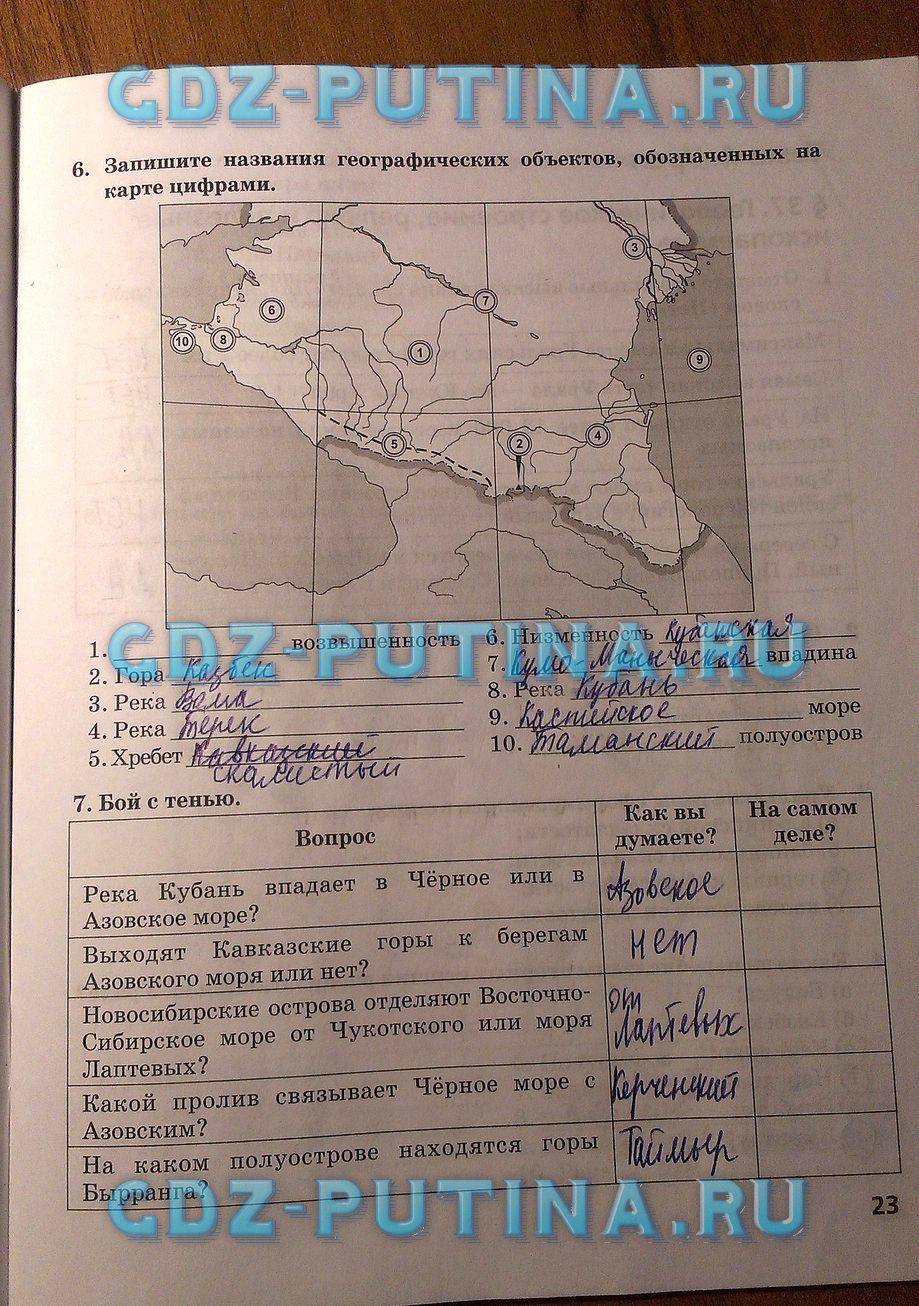 GDZ-PUTINA.RU
6. Запишите названия географических объектов, обозначенных на
карте цифрами.
3
6
7
10
8
1
9
5
2
4
GDZ-PUTINA.RU
1. возвышенность
2. Гора Казбек
3. Река Волга
4. Река Терек
5. Хребет Кавказский
скалистый
6. Низменность Кубанская
7. Кумо-Маныческая впадина
8. Река Кубань
9. Каспийское море
10. Таманский полуостров
7. Бой с тенью.
Вопрос
Как вы
думаете?
На самом
деле?
Река Кубань впадает в Чёрное или в
Азовское море?
Азовское
Выходят Кавказские горы к берегам
Азовского моря или нет?
нет
Новосибирские острова отделяют Восточно-
Сибирское море от Чукотского или моря
Лаптевых?
от
Лаптевых
Какой пролив связывает Чёрное море с
Азовским?
Керченский
На каком полуострове находятся горы
Бырранга?
Таймыр
GDZ-PUTINA.RU
23